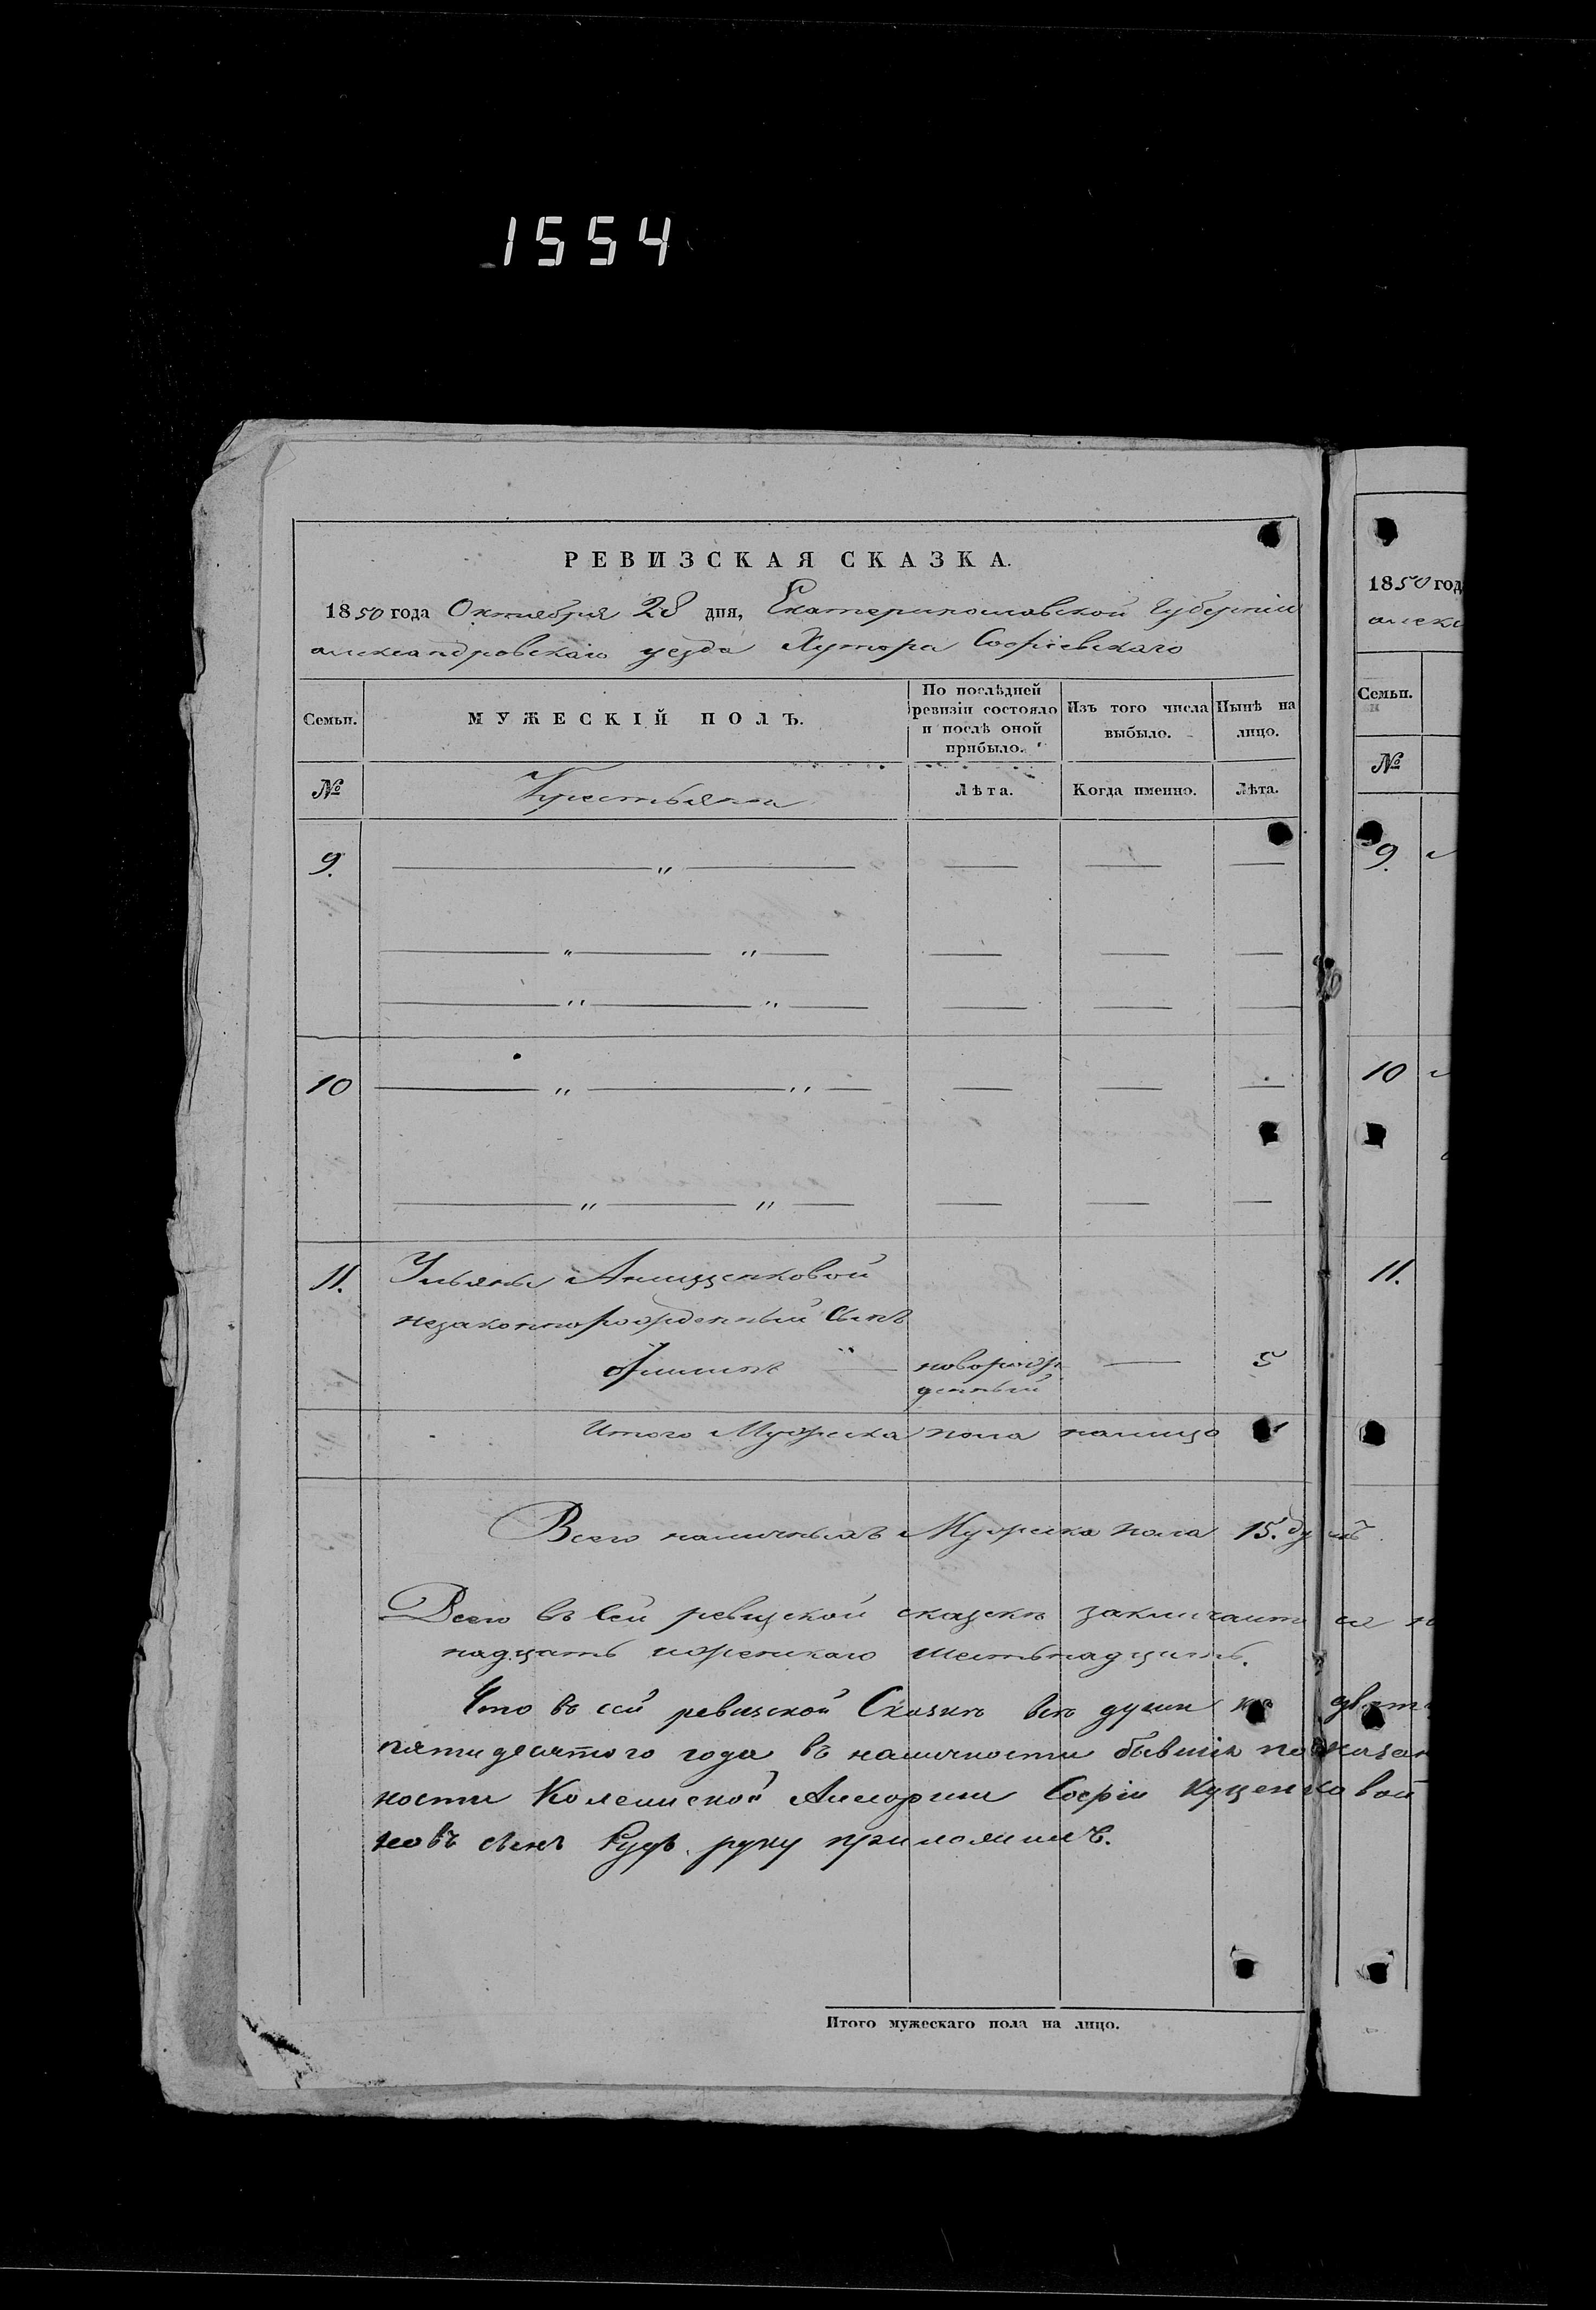 1554
РЕВИЗСКАЯ СКАЗКА.
1850 года Октября 28 дня, Екатеринославской Губерніи
александровскаго уезда Хутора Софіевскаго
Семьи.
МУЖЕСКІЙ ПОЛЪ.
По послѣдней ревизіи состояло и послѣ оной прибыло.
Изъ того числа выбыло.
Нынѣ на лицо.
№
Крестьяна
Лѣта.
Когда именно.
Лѣта.
9.
10
11. Ульяны Анищенковой
незаконнорожденный Сынъ
новорож
денный
5
Итого Мужеска пола налицо 1
Всего наличныхъ Мужеска пола 15. душъ
Всего въ сей ревизской сказкѣ заключаится
надцать женскаго шестьнадцать.
Что въ сей ревизской Сказкѣ всѣ души
пятидесятого года въ наличности бывшія показан
ности Колежской Софіи Куценковой
новъ сынъ руку приложилъ.
Итого мужескаго пола на лицо.
1850 год
алекс
Семьи.
№
9.
10
11.